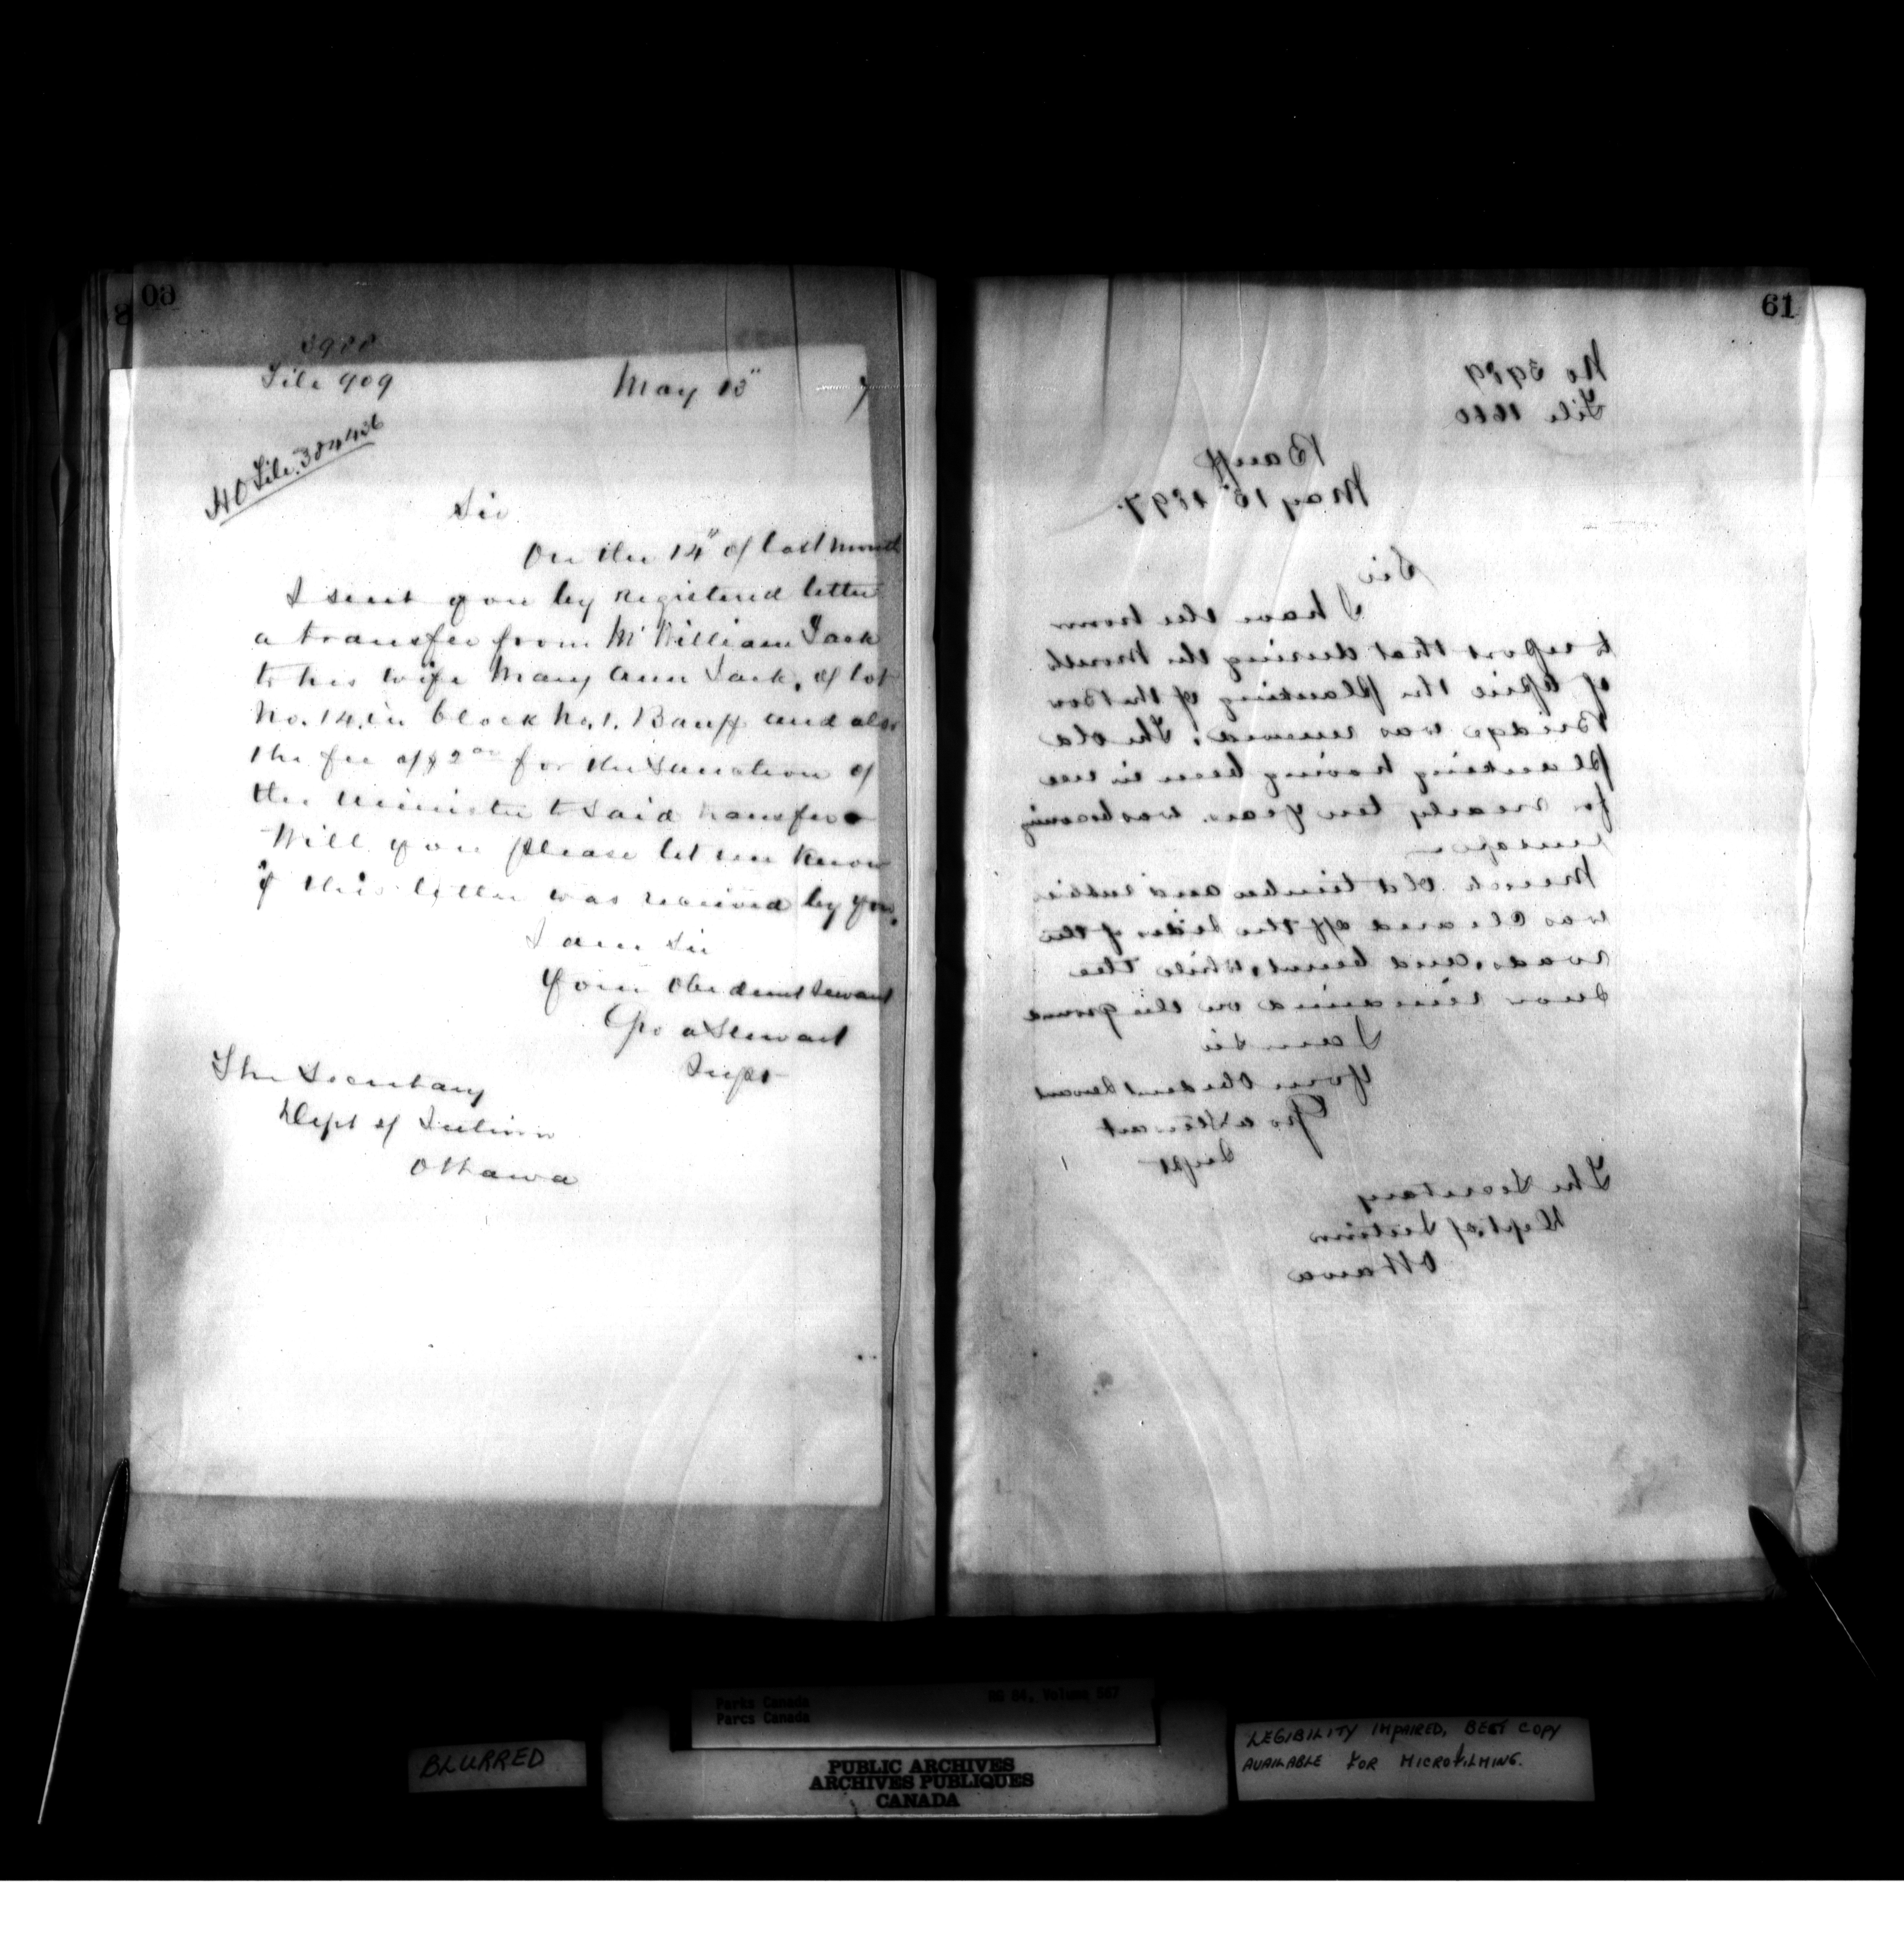 60
3988
File 909
May 15" 7
HO File. 384426
Sir
On the 14" of last month
I sent you by registered letter
a transfer from Mr William Jack
to his wife Mary Ann Jack, of lot
No. 14, in block No. 1. Banff and also
the fee of $2.00 for the Sanction of
the Minister to said transfer
Will you please let me know
if this letter was received by you.
I am Sir
Your Obedient Servant
Geo A Stewart
Supt
The Secretary
Dept of Interior
Ottawa
61
No 3989
File 1660
Banff
May 15" 1897.
Sir
I have the honor
to report that during the Month
of April the planking of the Bow
Bridge was renewed. The old
planking having been in use
for nearly ten years was becoming
unsafe
Much Old timber and rubbish
was Cleared off the sides of the
roads, and burnt, while the
Snow remained on the ground
I am Sir
Your Obedient Servant
Geo A Stewart
Supt
The Secretary
Dept. of Interior
Ottawa
Parks Canada RG 84, Volume 567
Parcs Canada
BLURRED
PUBLIC ARCHIVES
ARCHIVES PUBLIQUES
CANADA
LEGIBILITY IMPAIRED, BEST COPY
AVAILABLE FOR MICROFILMING.